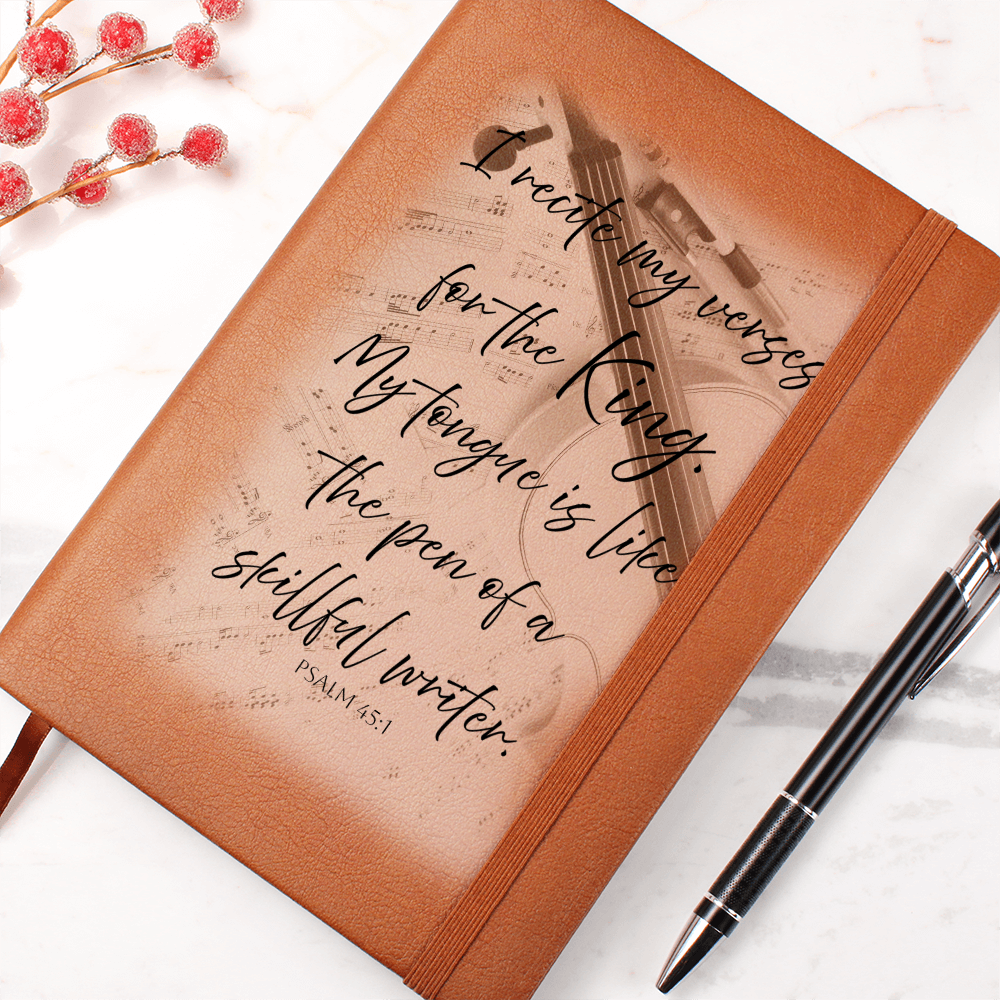 I recite my verses
for the King.
My tongue is like
the pen of a
skillful writer.
PSALM 45:1